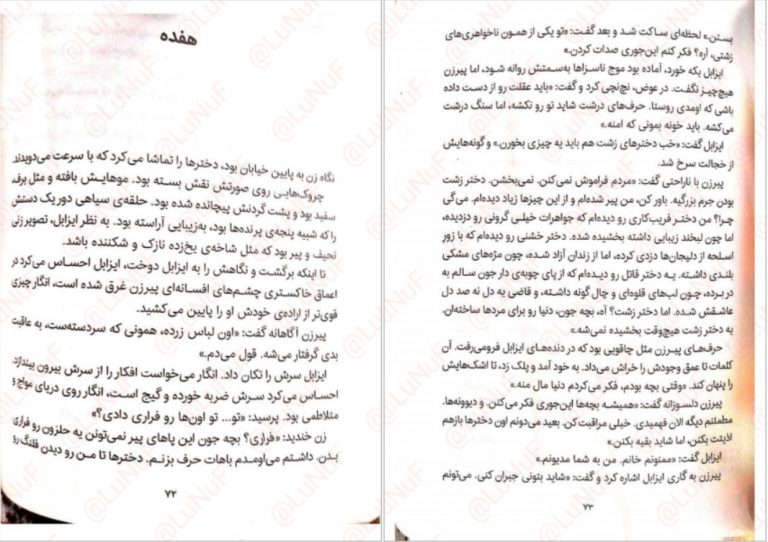 هفده
نگاه زن به پایین خیابان بود، دخترها را تماشا می‌کرد که با سرعت می‌دویدند.
چروک‌هایی روی صورتش نقش بسته بود. موهایش بافته و مثل برف
سفید بود و پشت گردنش پیچانده شده بود. حلقه‌ی سیاهی دور یک دستش
را که شبیه پنجه‌ی پرنده‌ها بود، به‌زیبایی آراسته بود. به نظر ایزابل، تصویر زنی
نحیف و پیر بود که مثل شاخه‌ی یخ‌زده نازک و شکننده باشد.
تا اینکه برگشت و نگاهش را به ایزابل دوخت، ایزابل احساس می‌کرد در
اعماق خاکستری چشم‌های افسانه‌ای پیرزن غرق شده است، انگار چیزی
قوی‌تر از اراده‌ی خودش او را پایین می‌کشید.
پیرزن آگاهانه گفت: «اون لباس زرده، همونی که سردسته‌ست، به عاقبت
بدی گرفتار می‌شه. قول می‌دم.»
ایزابل سرش را تکان داد. انگار می‌خواست افکار را از سرش بیرون بیندازد.
احساس می‌کرد سرش ضربه خورده و گیج است، انگار روی دریای مواج و
متلاطمی بود. پرسید: «تو... تو اون‌ها رو فراری دادی؟»
زن خندید: «فراری؟ بچه جون این پاهای پیر نمی‌تونن یه حلزون رو فراری
بدن. داشتم می‌اومدم باهات حرف بزنم. دخترها تا من رو دیدن فلنگ رو
۷۲
بستن.» لحظه‌ای ساکت شد و بعد گفت: «تو یکی از همون ناخواهری‌های
زشتی، آره؟ فکر کنم این‌جوری صدات کردن.»
ایزابل یکه خورد، آماده بود موج ناسزاها به‌سمتش روانه شود، اما پیرزن
هیچ‌چیز نگفت. در عوض، نچ‌نچی کرد و گفت: «باید عقلت رو از دست داده
باشی که اومدی روستا. حرف‌های درشت شاید تو رو نکشه، اما سنگ درشت
می‌کشه. باید خونه بمونی که امنه.»
ایزابل گفت: «خب دخترهای زشت هم باید یه چیزی بخورن.» و گونه‌هایش
از خجالت سرخ شد.
پیرزن با ناراحتی گفت: «مردم فراموش نمی‌کنن. نمی‌بخشن. دختر زشت
بودن جرم بزرگیه. باور کن، من پیر شده‌ام و از این چیزها زیاد دیده‌ام. می‌گی
چرا؟ من دختر فریب‌کاری رو دیده‌ام که جواهرات خیلی گرونی رو دزدیده،
اما چون لبخند زیبایی داشته بخشیده شده. دختر خشنی رو دیده‌ام که با زور
اسلحه از دلیجان‌ها دزدی کرده، اما از زندان آزاد شده، چون مژه‌های مشکی
بلندی داشته. یه دختر قاتل رو دیده‌ام که از پای چوبه‌ی دار جون سالم به
در برده، چون لب‌های قلوه‌ای و چال گونه داشته، و قاضی یه دل نه صد دل
عاشقش شده. اما دختر زشت؟ آه، بچه جون، دنیا رو برای مردها ساخته‌ان.
یه دختر زشت هیچ‌وقت بخشیده نمی‌شه.»
حرف‌های پیرزن مثل چاقویی بود که در دنده‌های ایزابل فرومی‌رفت. آن
کلمات تا عمق وجودش را خراش می‌داد. به خود آمد و پلک زد، تا اشک‌هایش
را پنهان کند. «وقتی بچه بودم، فکر می‌کردم دنیا مال منه.»
پیرزن دلسوزانه گفت: «همیشه بچه‌ها این‌جوری فکر می‌کنن. و دیوونه‌ها.
مطمئنم دیگه الان فهمیدی. خیلی مراقبت کن. بعید می‌دونم اون دخترها بازهم
اذیتت بکنن، اما شاید بقیه بکنن.»
ایزابل گفت: «ممنونم خانم. من به شما مدیونم.»
پیرزن به گاری ایزابل اشاره کرد و گفت: «شاید بتونی جبران کنی. می‌تونم
۷۳
@LuNuF